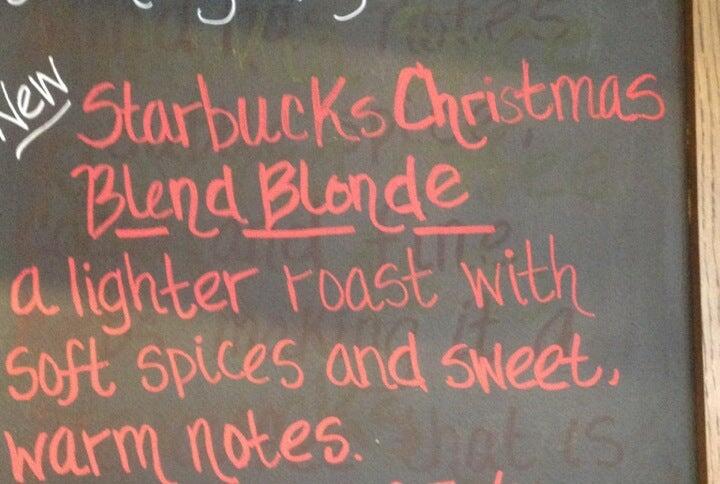 New
Starbucks Christmas
Blend Blonde
a lighter roast with
soft spices and sweet,
warm notes.